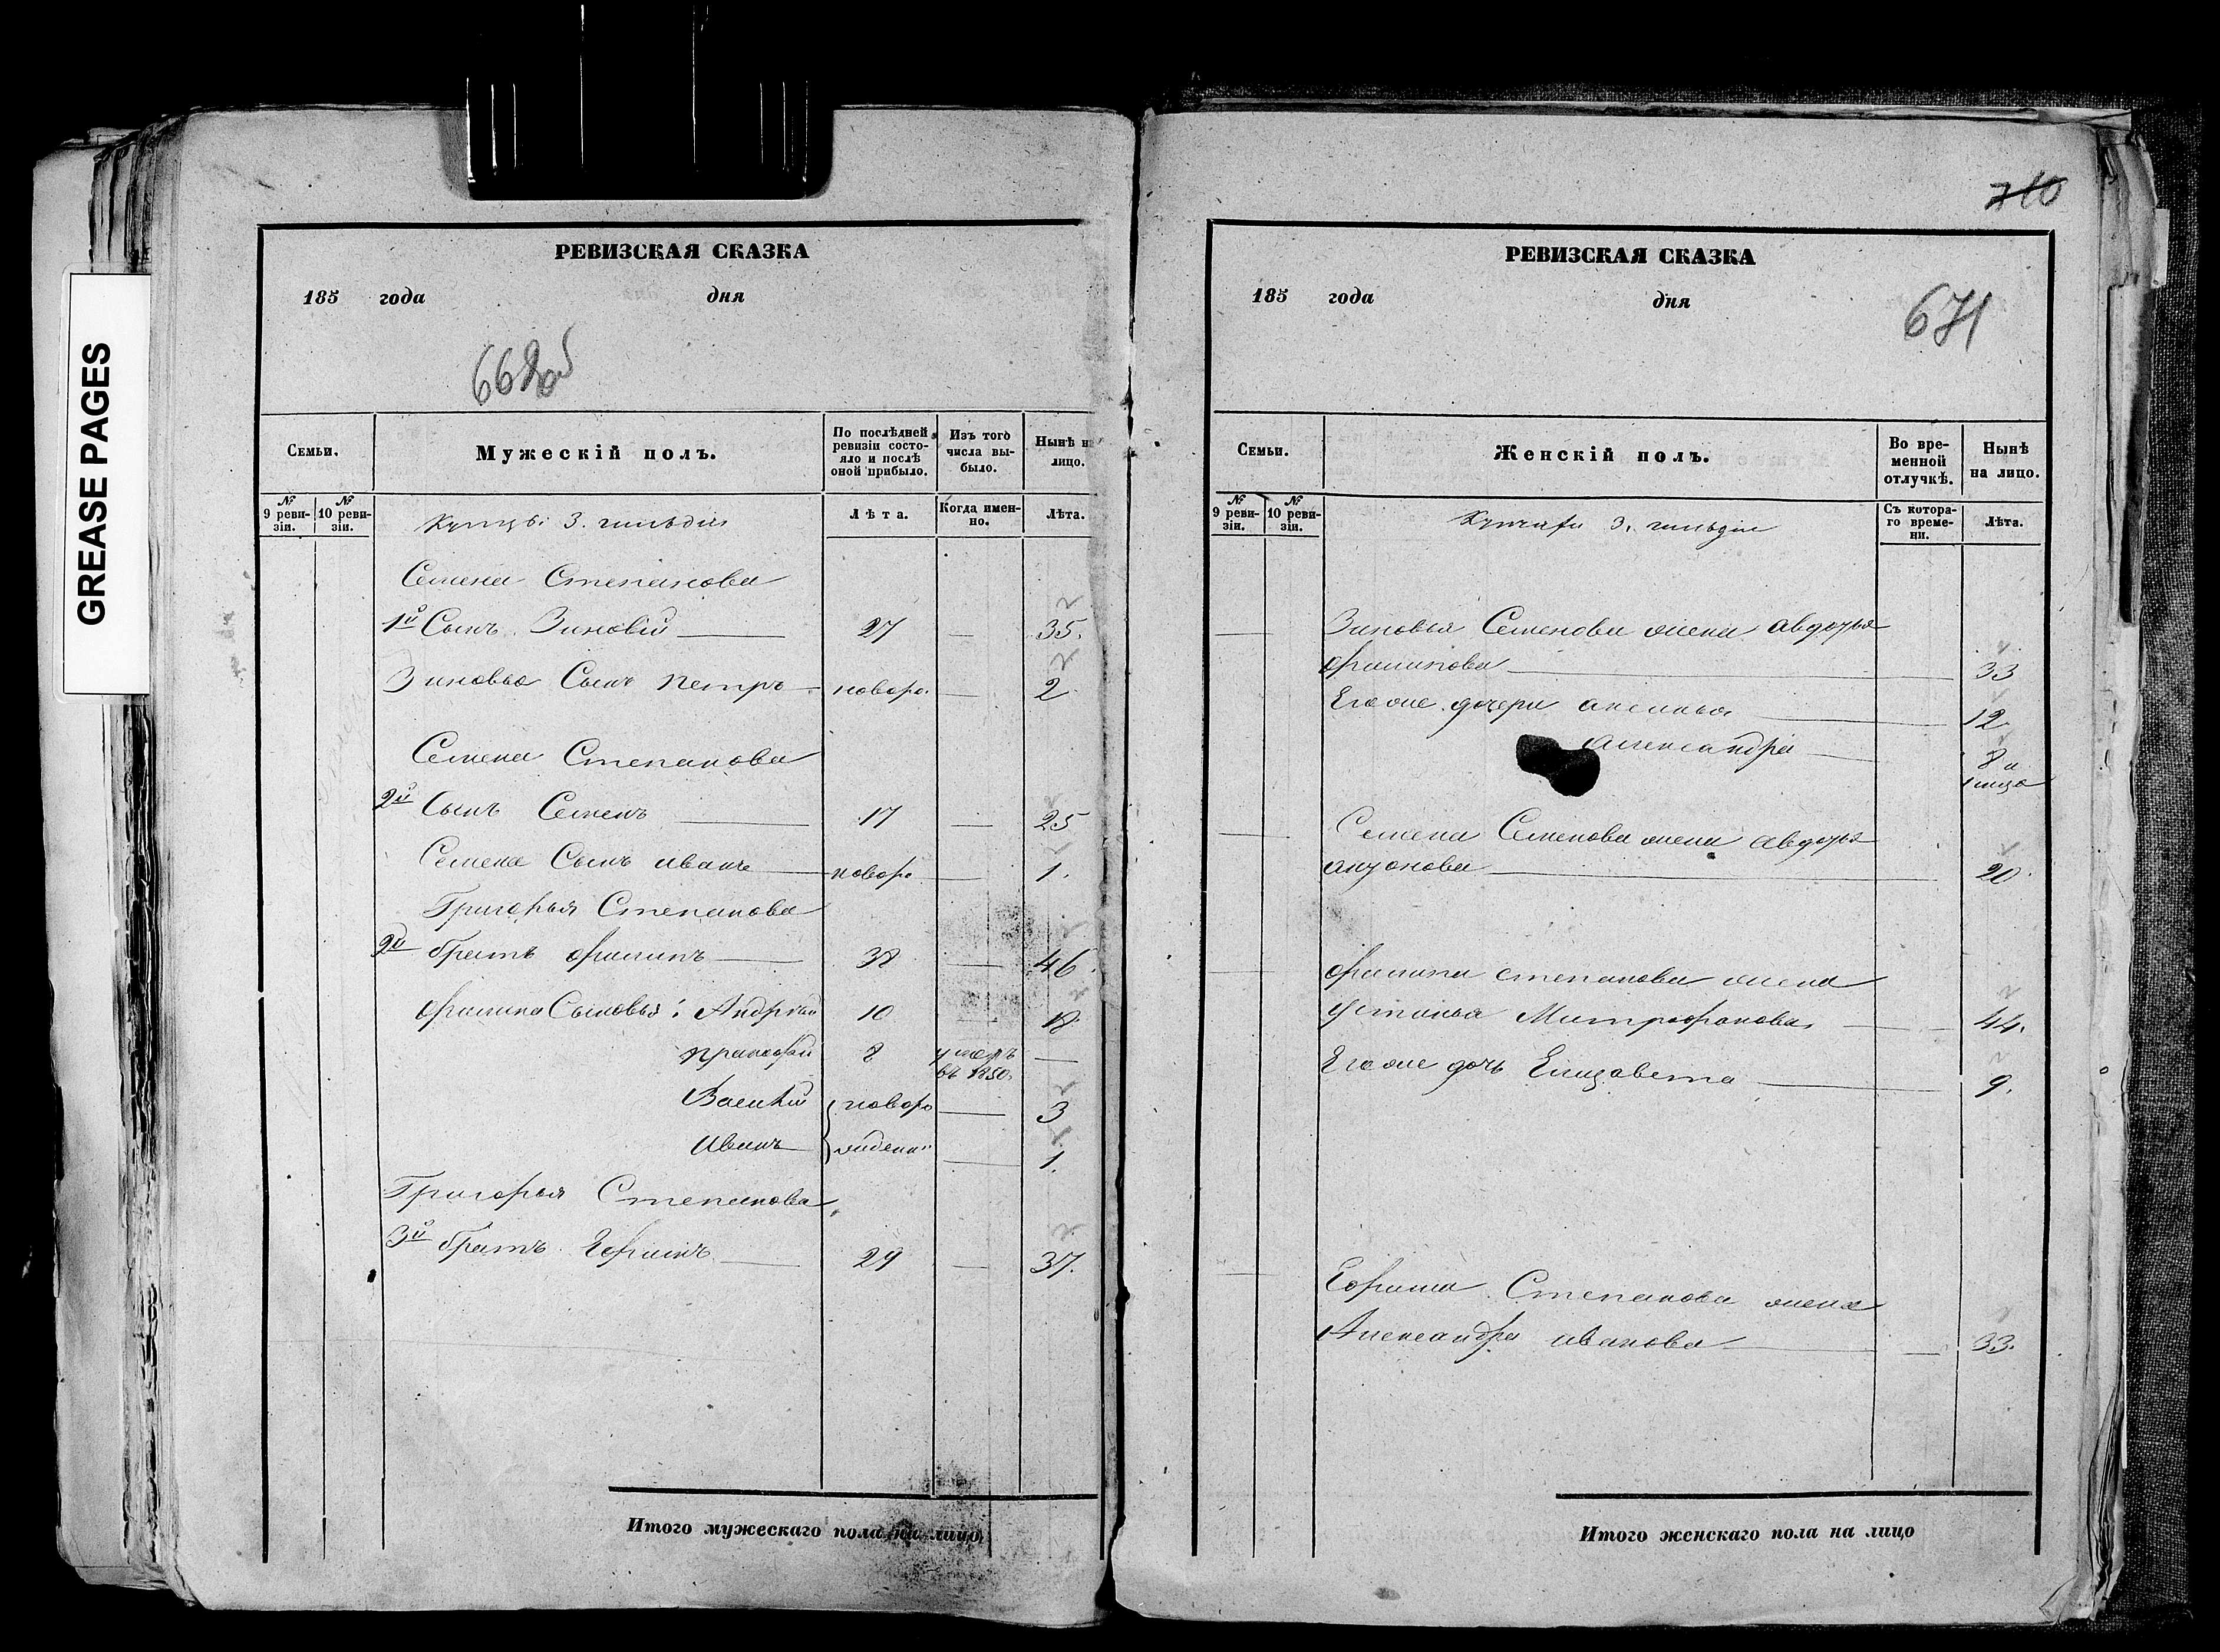 GREASE PAGES
РЕВИЗСКАЯ СКАЗКА
185 года дня
Семьи.
Мужескій полъ.
По послѣдней ревизіи состо-
яло и послѣ
оной прибыло.
Изъ того
числа вы-
было.
Нынѣ н
лицо.
№
9 реви-
зіи.
№
10 реви-
зіи.
Лѣта.
Когда имен-
но.
Лѣта.
Купцы 3. гильдіи
Семена Степанова
1й Сынъ Зиновій 27 — 35.
Зиновья Сынъ Петръ новоро. — 2
Семена Степанова
2й Сынъ Семенъ 17 — 25
Семена Сынъ иванъ новоро — 1.
Григорья Степанова
2й братъ филипъ 38 — 46.
филипа Сыновья: Андрей 10 — 18
прокофій 8 умеръ —
въ 1850.
Василій новоро — 3
Иванъ жденн — 1.
Григорья Степанова
3й братъ Ефимъ 29 — 37.
Итого мужескаго пола на лицо
710
РЕВИЗСКАЯ СКАЗКА
185 года дня
671
Семьи.
Женскій полъ.
Во вре-
менной
отлучкѣ.
Нынѣ
на лицо.
№
9 реви-
зіи.
№
10 реви-
зіи.
Съ котора-
го време-
ни.
Лѣта.
3. гильдіи
Зиновья Семенова жена авдотья
филипова 33
Его же дочери аксинья 12
александра 8 и
1 мца
Семена Семенова жена авдотья
антонова 20.
филипа степанова жена
устинья Митрофанова 44.
Его же дочь Елизавета 9.
Ефима Степанова жена
Александра иванова 33.
Итого женскаго пола на лицо